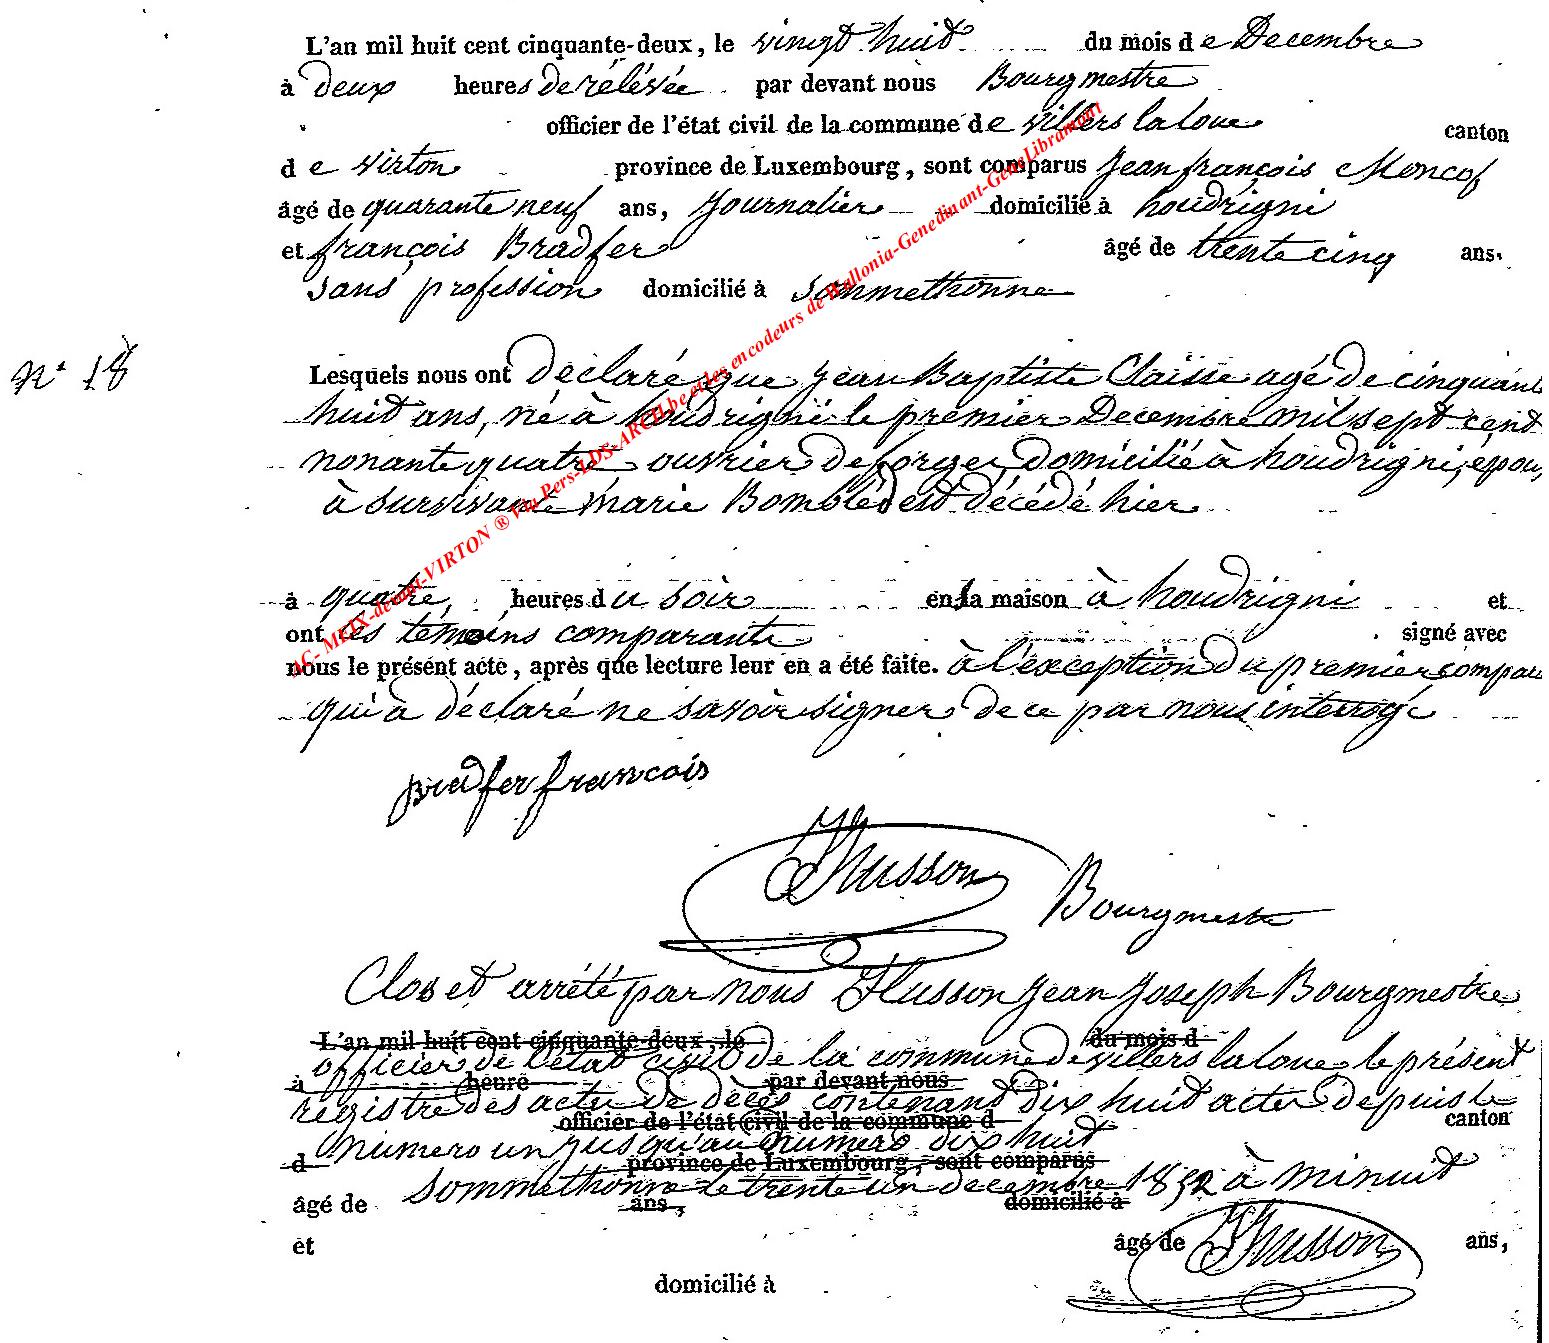 L'an mil huit cent cinquante-deux, le vingt huit du mois de Decembre
à deux heures de rélévée par devant nous Bourgmestre
officier de l'état civil de la commune de Villers la loue canton
de virton province de Luxembourg, sont comparus Jean françois
âgé de quarante neuf ans, Journalier domicilié à houdrigni
et françois Bradfer âgé de trente cinq ans.
sans profession domicilié à sommethonne
N° 18
Lesquels nous ont déclaré que Jean Baptiste Claisse agé de cinquante
huit ans, né à houdrigni le premier Decembre mil sept cent
nonante quatre ouvrier de forges domicilié à houdrigni, epou,
à survivante marie Bombled est décédé hier
à quatre heures du soir en la maison à houdrigni et
ont les témoins comparants signé avec
nous le présent acte, après que lecture leur en a été faite. à l'exception du premier compara
qui à déclaré ne savoir signer de ce par nous interrogé
bradfer francois
JHusson Bourgmestre
Clos et arrété par nous Husson Jean Joseph Bourgmestre
L'an mil huit cent cinquante-deux, le du mois d
officier de l'état civil de la commune de villers la loue le présent
à heure par devant nous
registre des actes de décès contenant dix huit actes depuis le
officier de l'état civil de la commune d canton
numero un jusqu'au numero dix huit
d province de Luxembourg, sont comparus
sommethonne le trente un decembre 1852 à minuit
âgé de ans, domicilié à
et âgé de JHusson ans,
domicilié à
AC- MEIX-devant-VIRTON ® Via Pers-LDS-ARCH.be et les encodeurs de Wallonia-Genedinant-GensLibramont